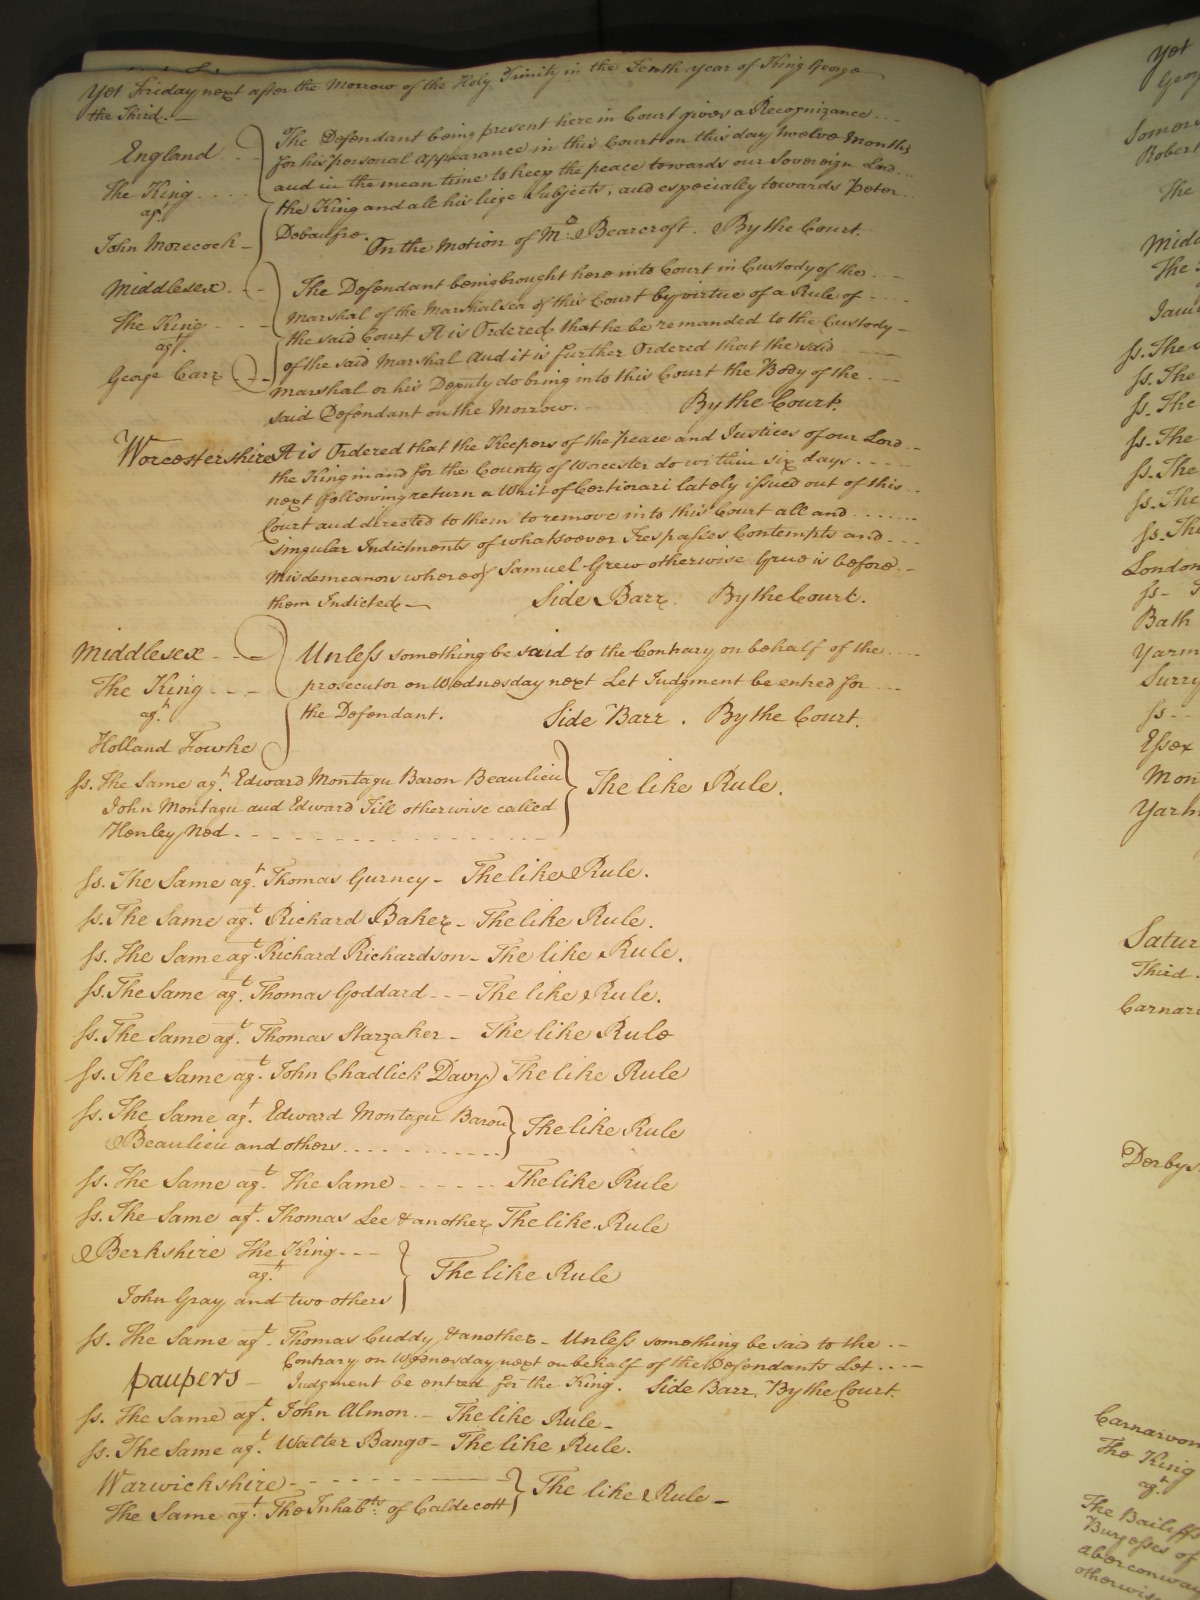 Yet Friday next after the Morrow of the Holy Trinity in the Tenth year of King George
the Third.
England
The King
agt
John Morecock
The Defendant being present here in Court gives a Recognizance
for his personal Appearance in this Court on this day twelve Months
and in the mean time to keep the peace towards our Sovereign Lord
the King and all his liege Subjects, and especially towards Peter
Debaufre. On the Motion of Mr. Bearcroft. By the Court.
Middlesex
The King
agt.
George Carr
The Defendant being brought here into Court in Custody of the
Marshal of the Marshalsea of this Court by virtue of a Rule of
the said Court It is Ordered that he be remanded to the Custody
of the said Marshal And it is further Ordered that the said
Marshal or his Deputy do bring into this Court the Body of the
said Defendant on the Morrow. By the Court.
Worcestershire It is Ordered that the Keepers of the Peace and Justices of our Lord
the King in and for the County of Worcester do within six days
next following return a Writ of Certiorari lately issued out of this
Court and directed to them to remove into this Court all and
singular Indictments of whatsoever Trespasses Contempts and
Misdemeanors whereof Samuel Grew otherwise Grue is before
them Indicted Side Barr By the Court.
Middlesex
The King
agt
Holland Fowke
Unless something be said to the Contrary on behalf of the
prosecutor on Wednesday next Let Judgment be entred for
the Defendant. Side Barr. By the Court.
ss. The Same agt. Edward Montagu Baron Beaulieu
John Montagu and Edward Till otherwise called
Henley Ned
The like Rule.
ss. The Same agt. Thomas Gurney - The like Rule.
ss. The Same agt. Richard Baker - The like Rule.
ss. The Same agt. Richard Richardson - The like Rule.
ss. The Same agt. Thomas Goddard - - - The like Rule.
ss. The Same agt. Thomas Starzaker - The like Rule
ss. The Same agt. John Chadlick Davy The like Rule
ss. The Same agt. Edward Montagu Baron
Beaulieu and others
The like Rule
ss. The Same agt. The Same The like Rule
ss. The Same agt. Thomas Lee & another The like Rule
Berkshire The King
agt
John Gray and two others
The like Rule
ss. The Same agt. Thomas Cuddy & another - Unless something be said to the
Contrary on Wednesday next on behalf of the Defendants Let
paupers - Judgment be entred for the King. Side Barr. By the Court.
ss. The Same agt. John Almon - The like Rule -
ss. The Same agt. Walter Bango - The like Rule.
Warwickshire
The Same agt. The Inhabts. of Caldecott
The like Rule -
Yet
Robert
The
The
ss. The
ss. The
ss. The
ss. The
ss. The
ss. The
London
ss
Bath
Surry
ss
Essex
Mon
Satur
Third
Carnarvon
The King
agt
The Bailiffs
Burgesses of
Aberconway
otherwise